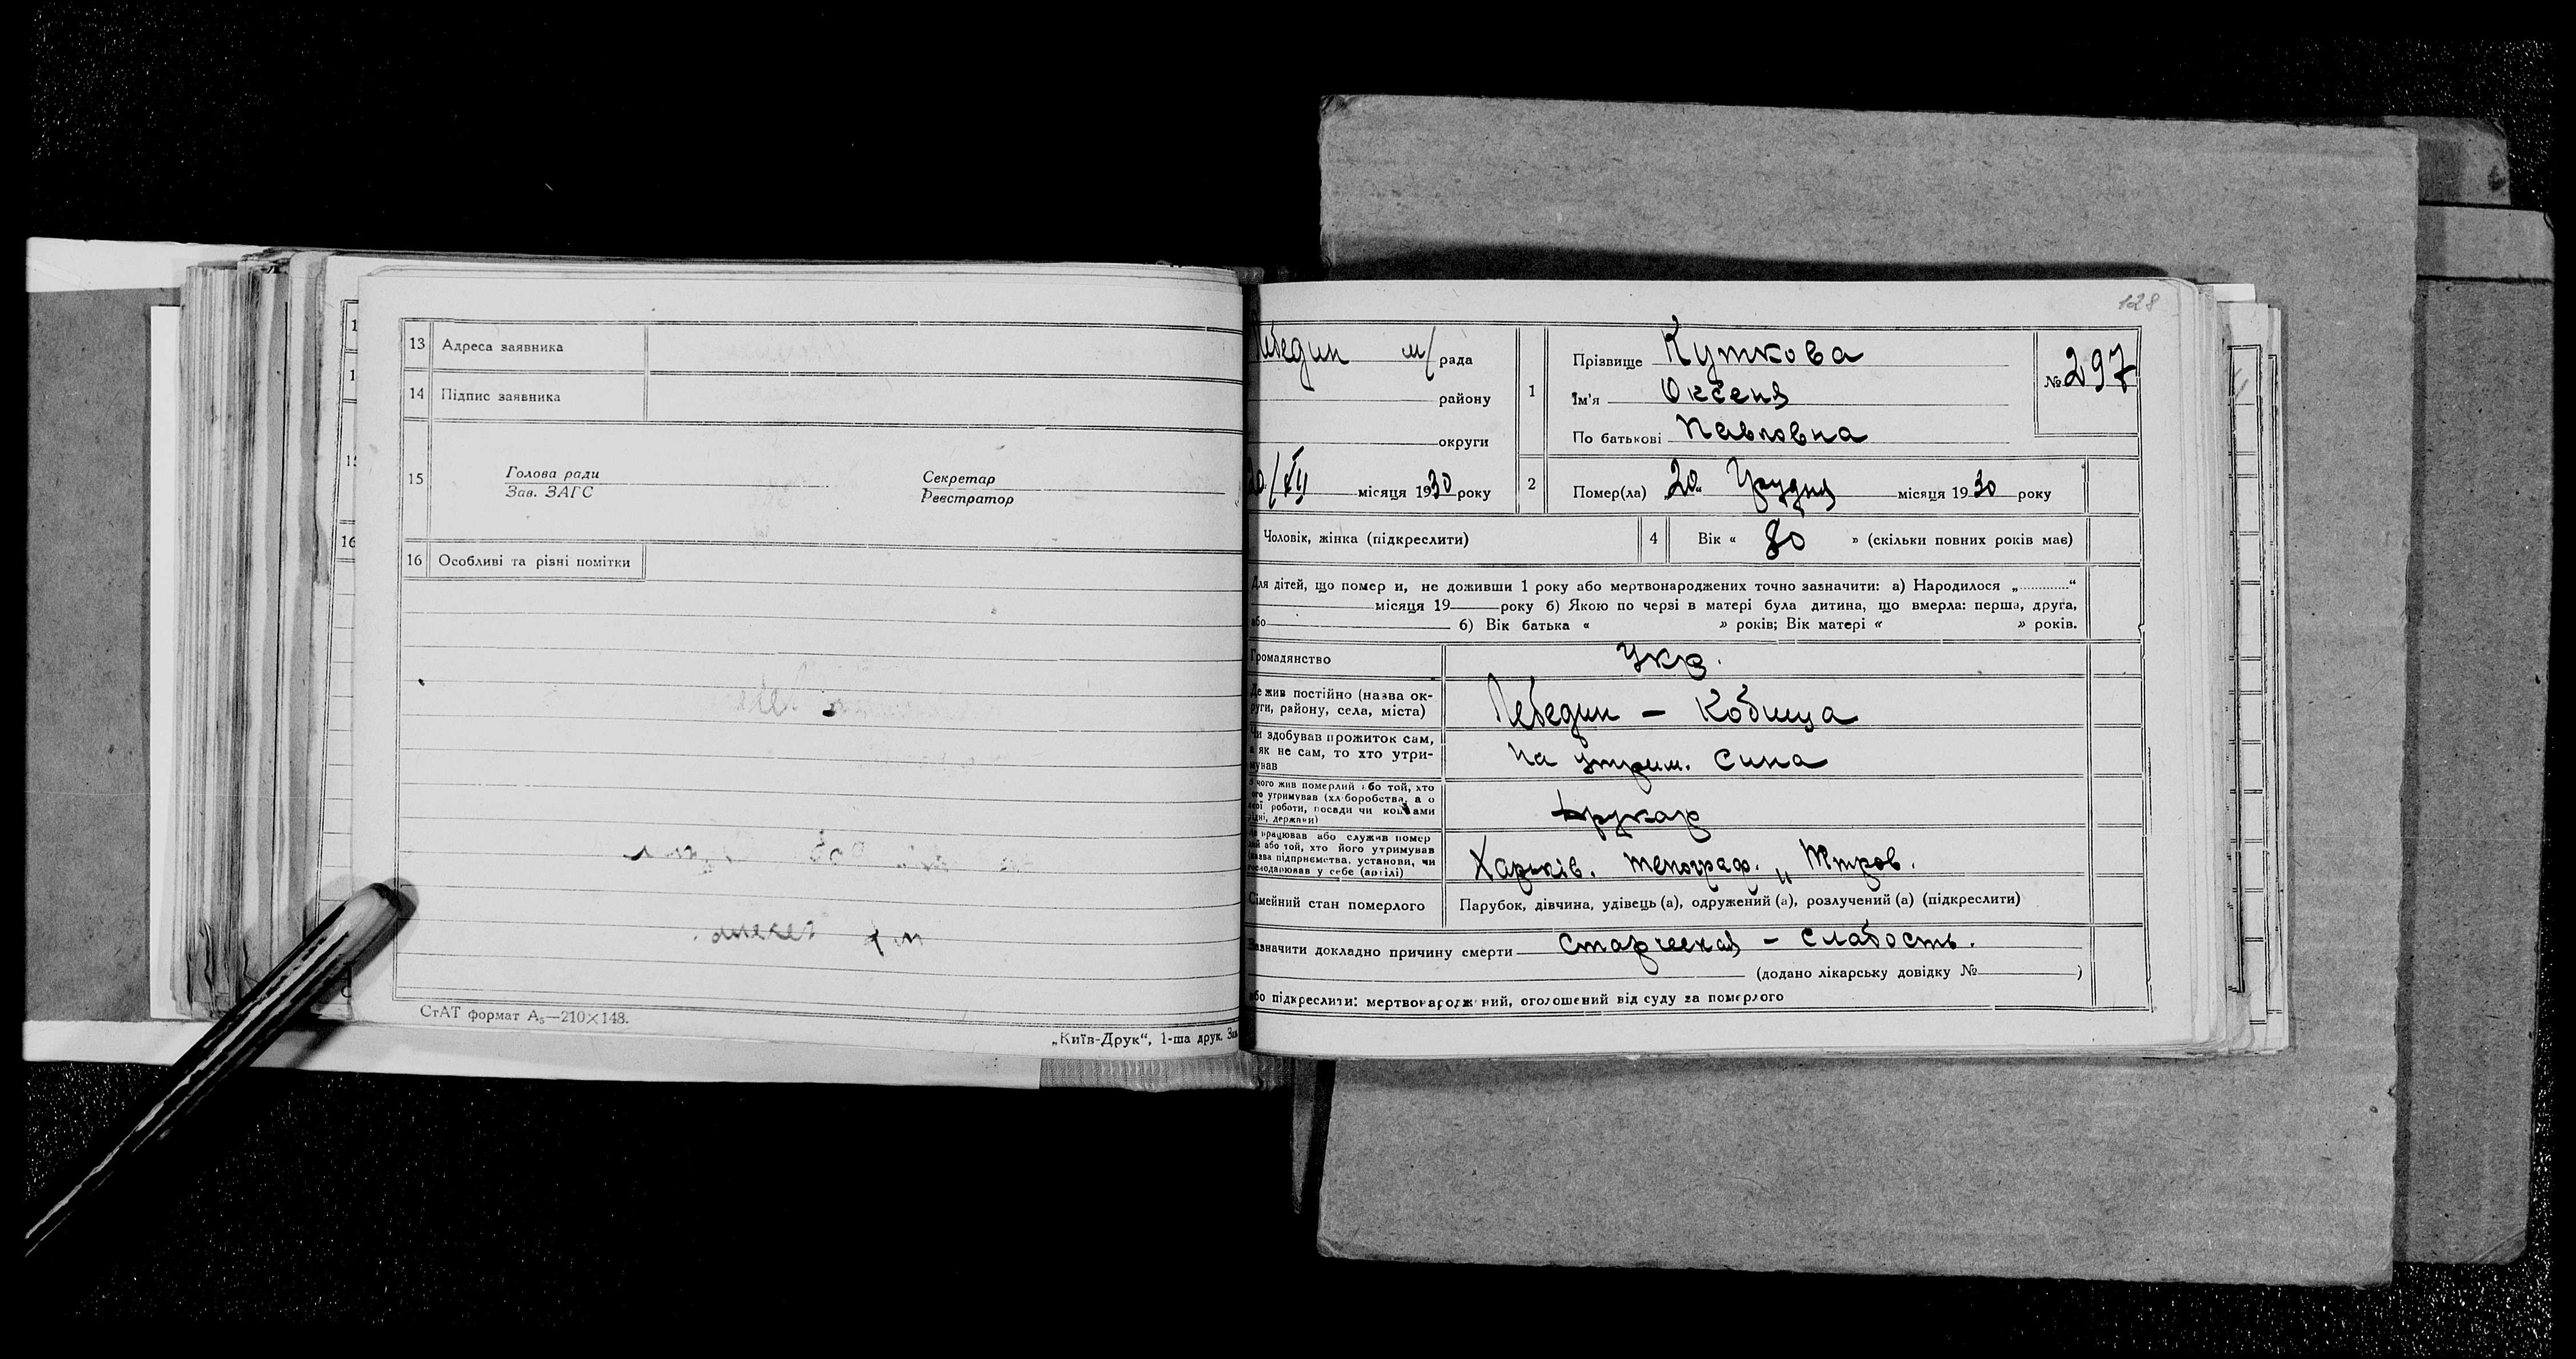 13 Адреса заявника
14 Підпис заявника
15 Голова ради
Зав. ЗАГС
Секретар
Реєстратор
16 Особливі та різні помітки
СтАТ формат А₅—210×148.
„Київ-Друк“, 1-ша друк. Зам
128
Лебедин м/ рада
району
округи
20/XII місяця 1930 року
1 Прізвище Куткова
Ім'я Оксеня
По батькові Павловна
№ 297
2 Помер(ла) „20“ Грудня місяця 1930 року
Чоловік, жінка (підкреслити)
4 Вік « 80 » (скільки повних років має)
Для дітей, що помер и, не доживши 1 року або мертвонароджених точно зазначити: а) Народилося „............“
місяця 19 року б) Якою по черзі в матері була дитина, що вмерла: перша, друга,
або б) Вік батька « » років; Вік матері « » років.
Громадянство Укр.
Де жив постійно (назва ок-
руги, району, села, міста) Лебедин – Кобища
Чи здобував прожиток сам,
а як не сам, то хто утри-
мував На утрим. сина
З чого жив померлий або той, хто
його утримував (хліборобства, а о
роботи, посади чи коштами
держави) друкар
працював або служив помер
або той, хто його утримував
(назва підприємства, установи, чи
господарював у себе (артілі) Харьків. типограф. „
Сімейний стан померлого Парубок, дівчина, удівець (а), одружений (а), розлучений (а) (підкреслити)
Зазначити докладно причину смерти Старческая – слабость.
(додано лікарську довідку № )
або підкреслити: мертвонароджений, оголошений від суду за померлого